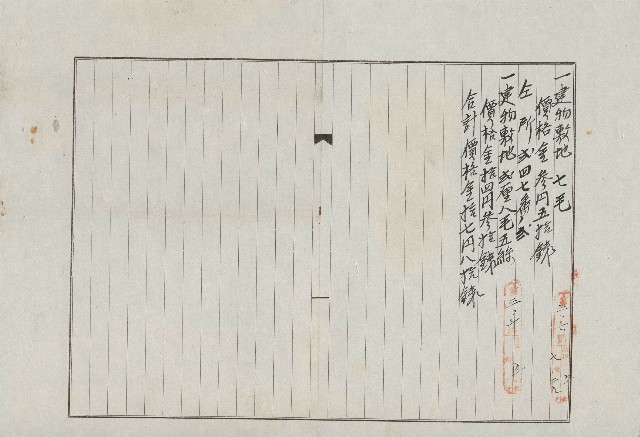 一建物敷地 七毛
價格金参円五拾錢
仝所弐四七番ノ弐
一建物敷地弐厘八毛五絲
價格金拾四円参拾錢
合計價格金拾七円八拾錢